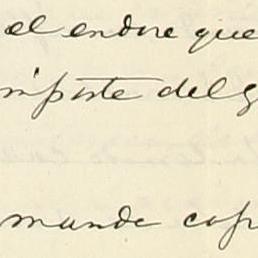 el endose que
importe del g
mande cop